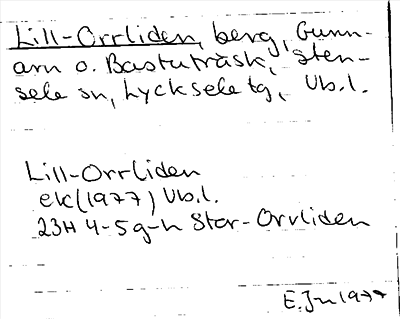 Lill-Orrliden, berg, Gunn-
arn o. Bastuträsk, Sten-
sele sn, Lycksele tg, Vb.l.
Lill-Orrliden
ek (1977) Vb.l.
23H 4-5 g-h Stor-Orrliden
E.Jn 1977